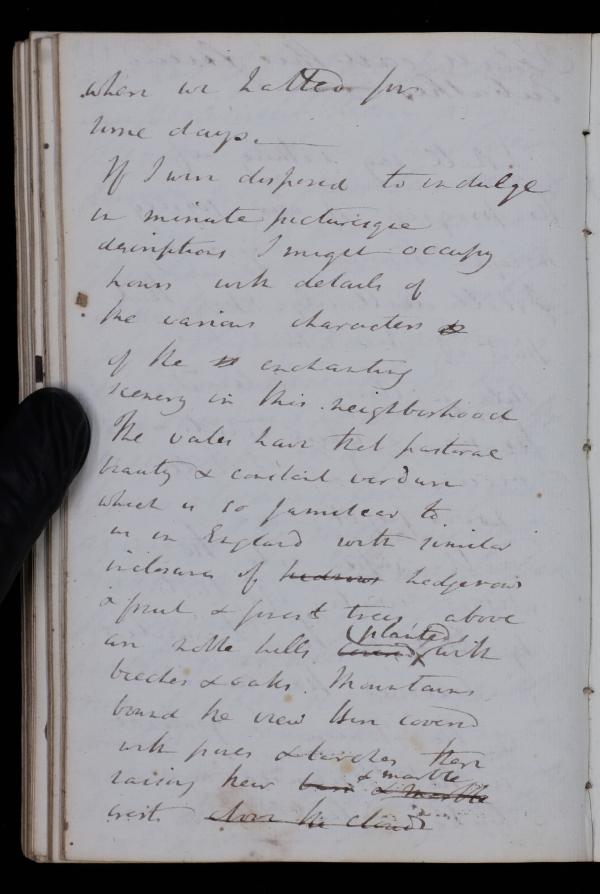 where we halted for
some days.
If I were disposed to indulge
in minute picturesque
descriptions I might occupy
hours with details of
the various characters
of the enchanting
scenery in this neighborhood
The vales have that pastoral
beauty & constant verdure
which is so familiar to
us in England with similar
inclosures of hedrows hedgerows
& fruit & forest trees above
are noble hills covered planted with
beeches & oaks. Mountains
bound the view here covered
with pines & larches there
raising their & marble & marble
crests above the clouds